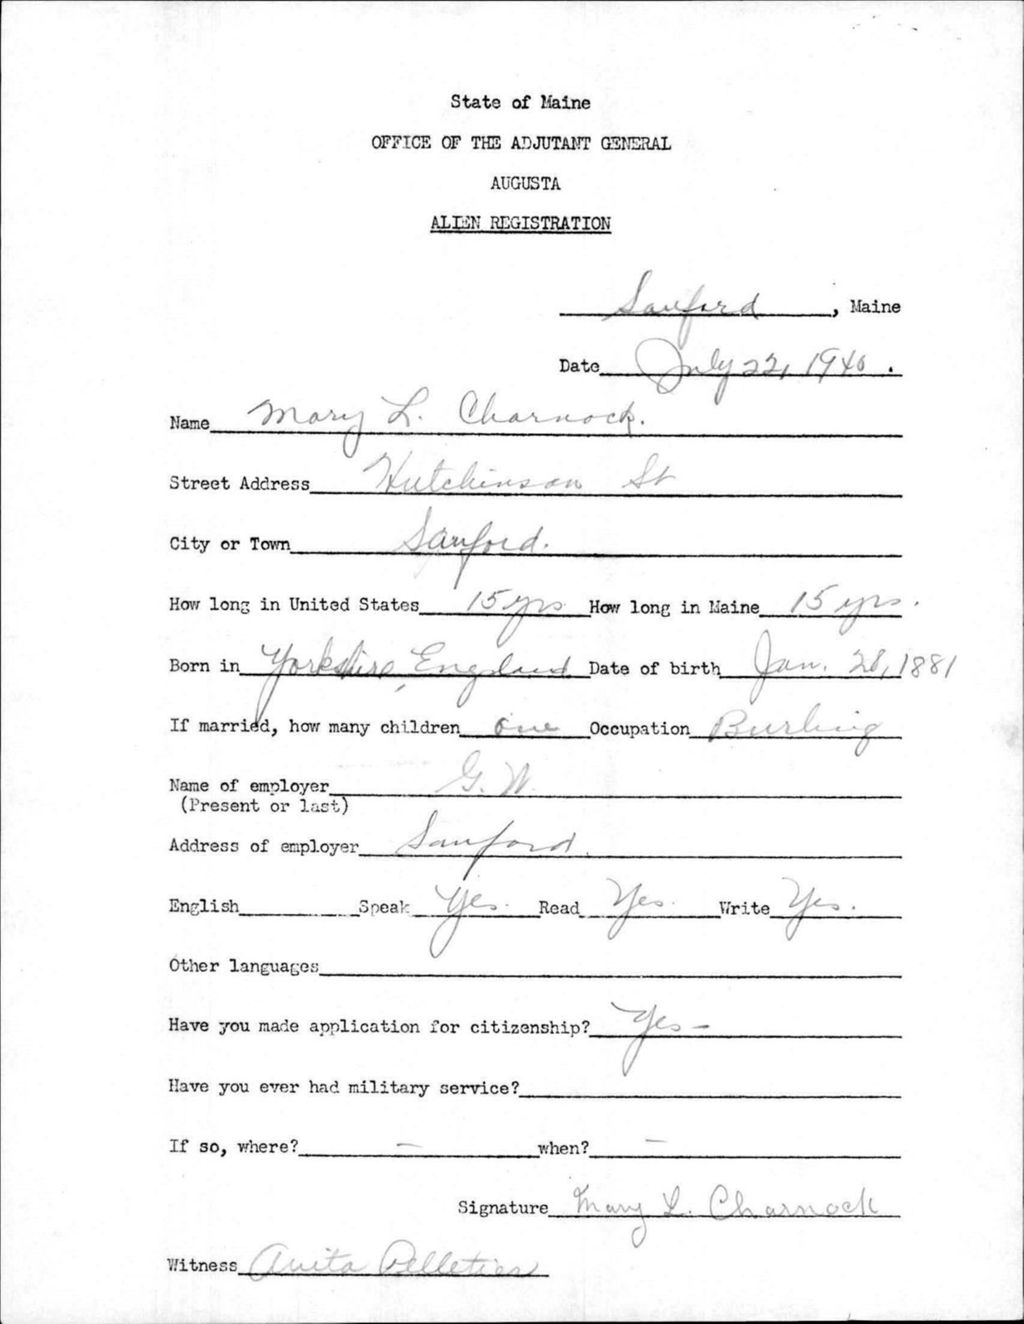 State of Maine
OFFICE OF THE ADJUTANT GENERAL
AUGUSTA
ALIEN REGISTRATION
Sanford, Maine
Date July 22, 1940.
Name Mary L. Charnock.
Street Address Hutchinson St
City or Town Sanford.
How long in United States 15 yrs How long in Maine 15 yrs.
Born in Yorkshire, England Date of birth Jan. 28, 1881
If married, how many children one Occupation Burling
Name of employer G. W.
(Present or last)
Address of employer Sanford.
English Speak Yes. Read Yes. Write Yes.
Other languages
Have you made application for citizenship? Yes –
Have you ever had military service?
If so, where? – when? –
Signature Mary L. Charnock
Witness Anita Pelletier